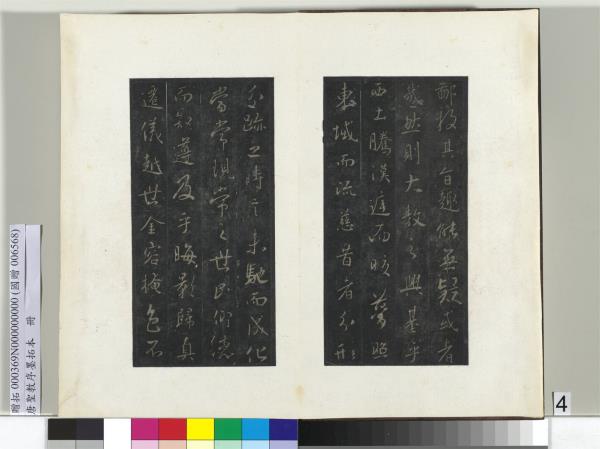 鄙投其旨趣能無疑或者
哉然則大教之興基乎
西土騰漢庭而皎夢照
東域而流慈昔者分形
分跡之時言未馳而成化
當常現常之世民仰德
而知遵及乎晦影歸真
遷儀越世金容掩色不
贈拓 000369N000000000 (國贈 006568)
唐聖教序墨拓本 冊
4